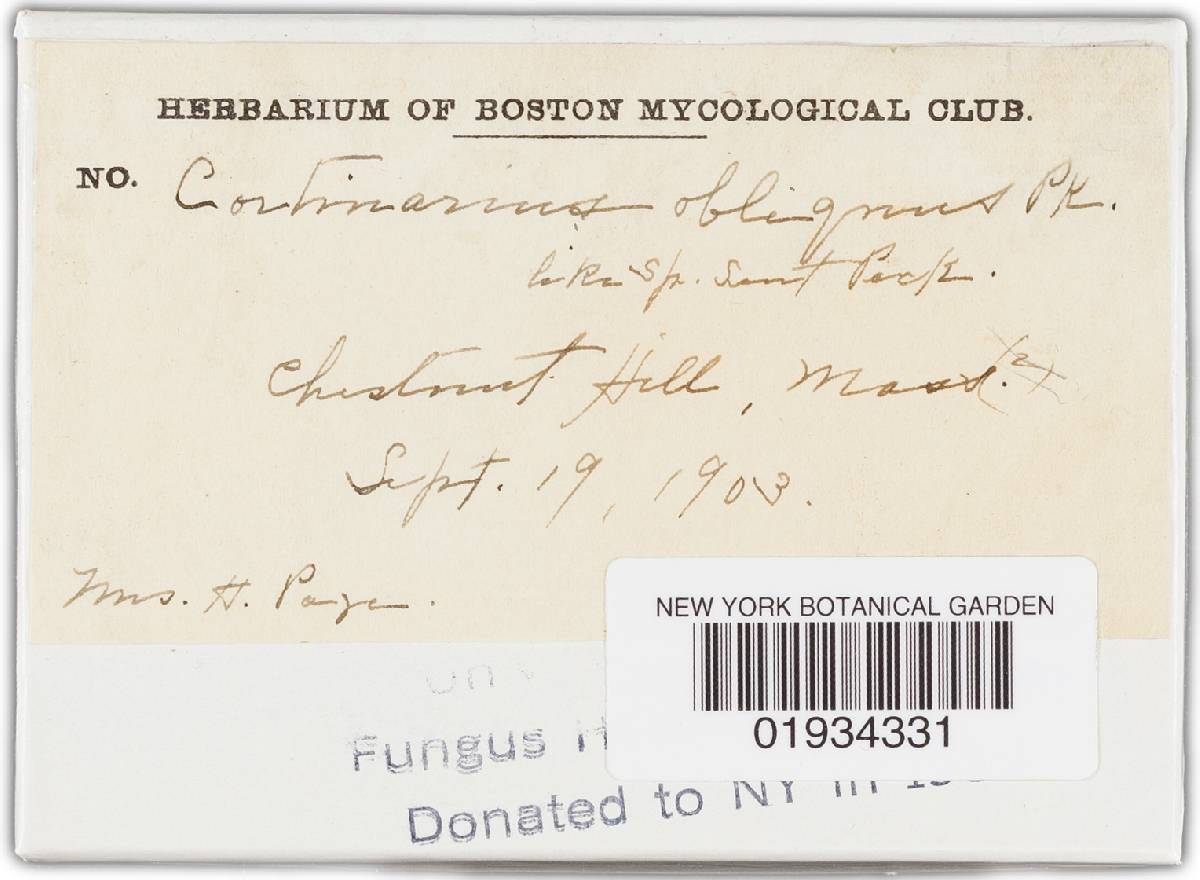 HERBARIUM OF BOSTON MYCOLOGICAL CLUB.
NO. Cortinarius obliquus Pk.
like sp. sent Peck.
Chestnut Hill, Mass.
Sept. 19, 1903.
Mrs. H. Page.
NEW YORK BOTANICAL GARDEN
01934331
Fungus
Donated to NY in